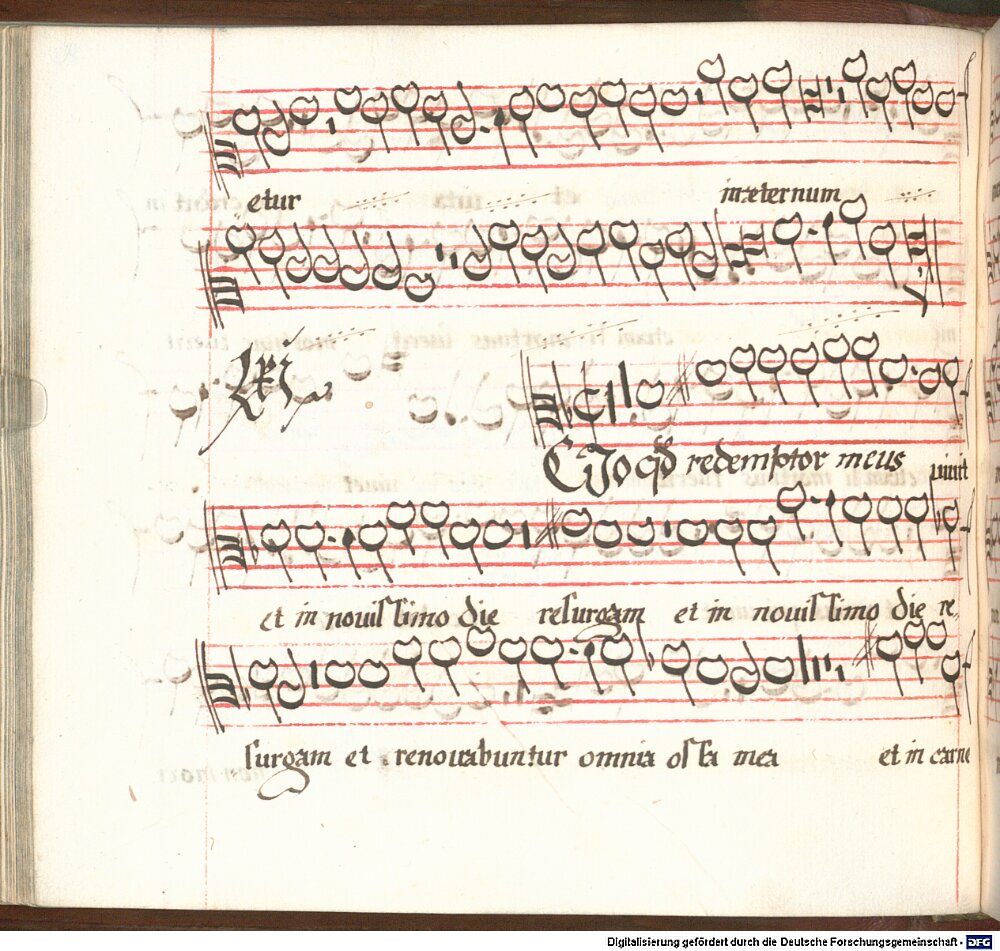 etur inæternum
LXI
Scio qđ redemptor meus uiuit
et in nouissimo die resurgam et in nouissimo die re
surgam et renouabuntur omnia ossa mea et in carne
Digitalisierung gefördert durch die Deutsche Forschungsgemeinschaft - DFG